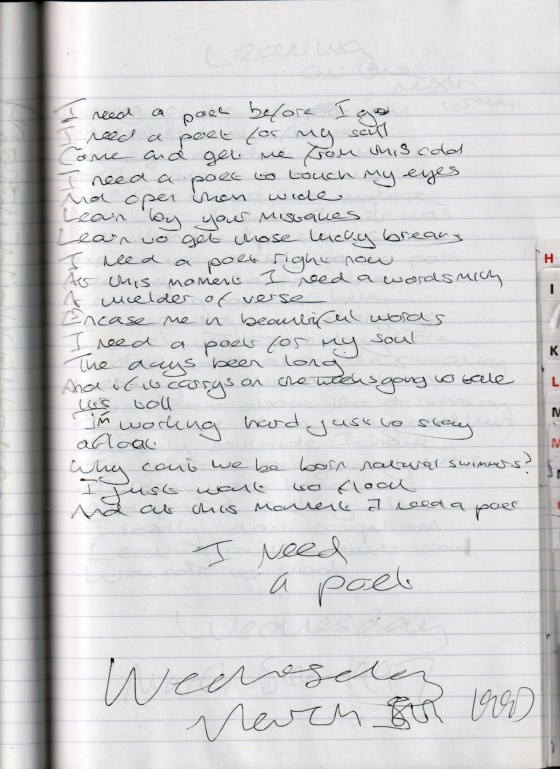 I need a poet before I go
I need a poet for my soul
Come and get me from this cold
I need a poet to touch my eyes
And open them wide
Learn by your mistakes
Learn to get those lucky breaks
I need a poet right now
At this moment I need a wordsmith
A wielder of verse
Encase me in beautiful words
I need a poet for my soul
The days been long
And if it carrys on the weeks going to take
its toll
I'm working hard just to stay
afloat
Why can't we be born natural swimmers?
I just want to float
And at this moment I need a poet
I Need
a poet
Wednesday
March 8th
H
I
K
L
M
M